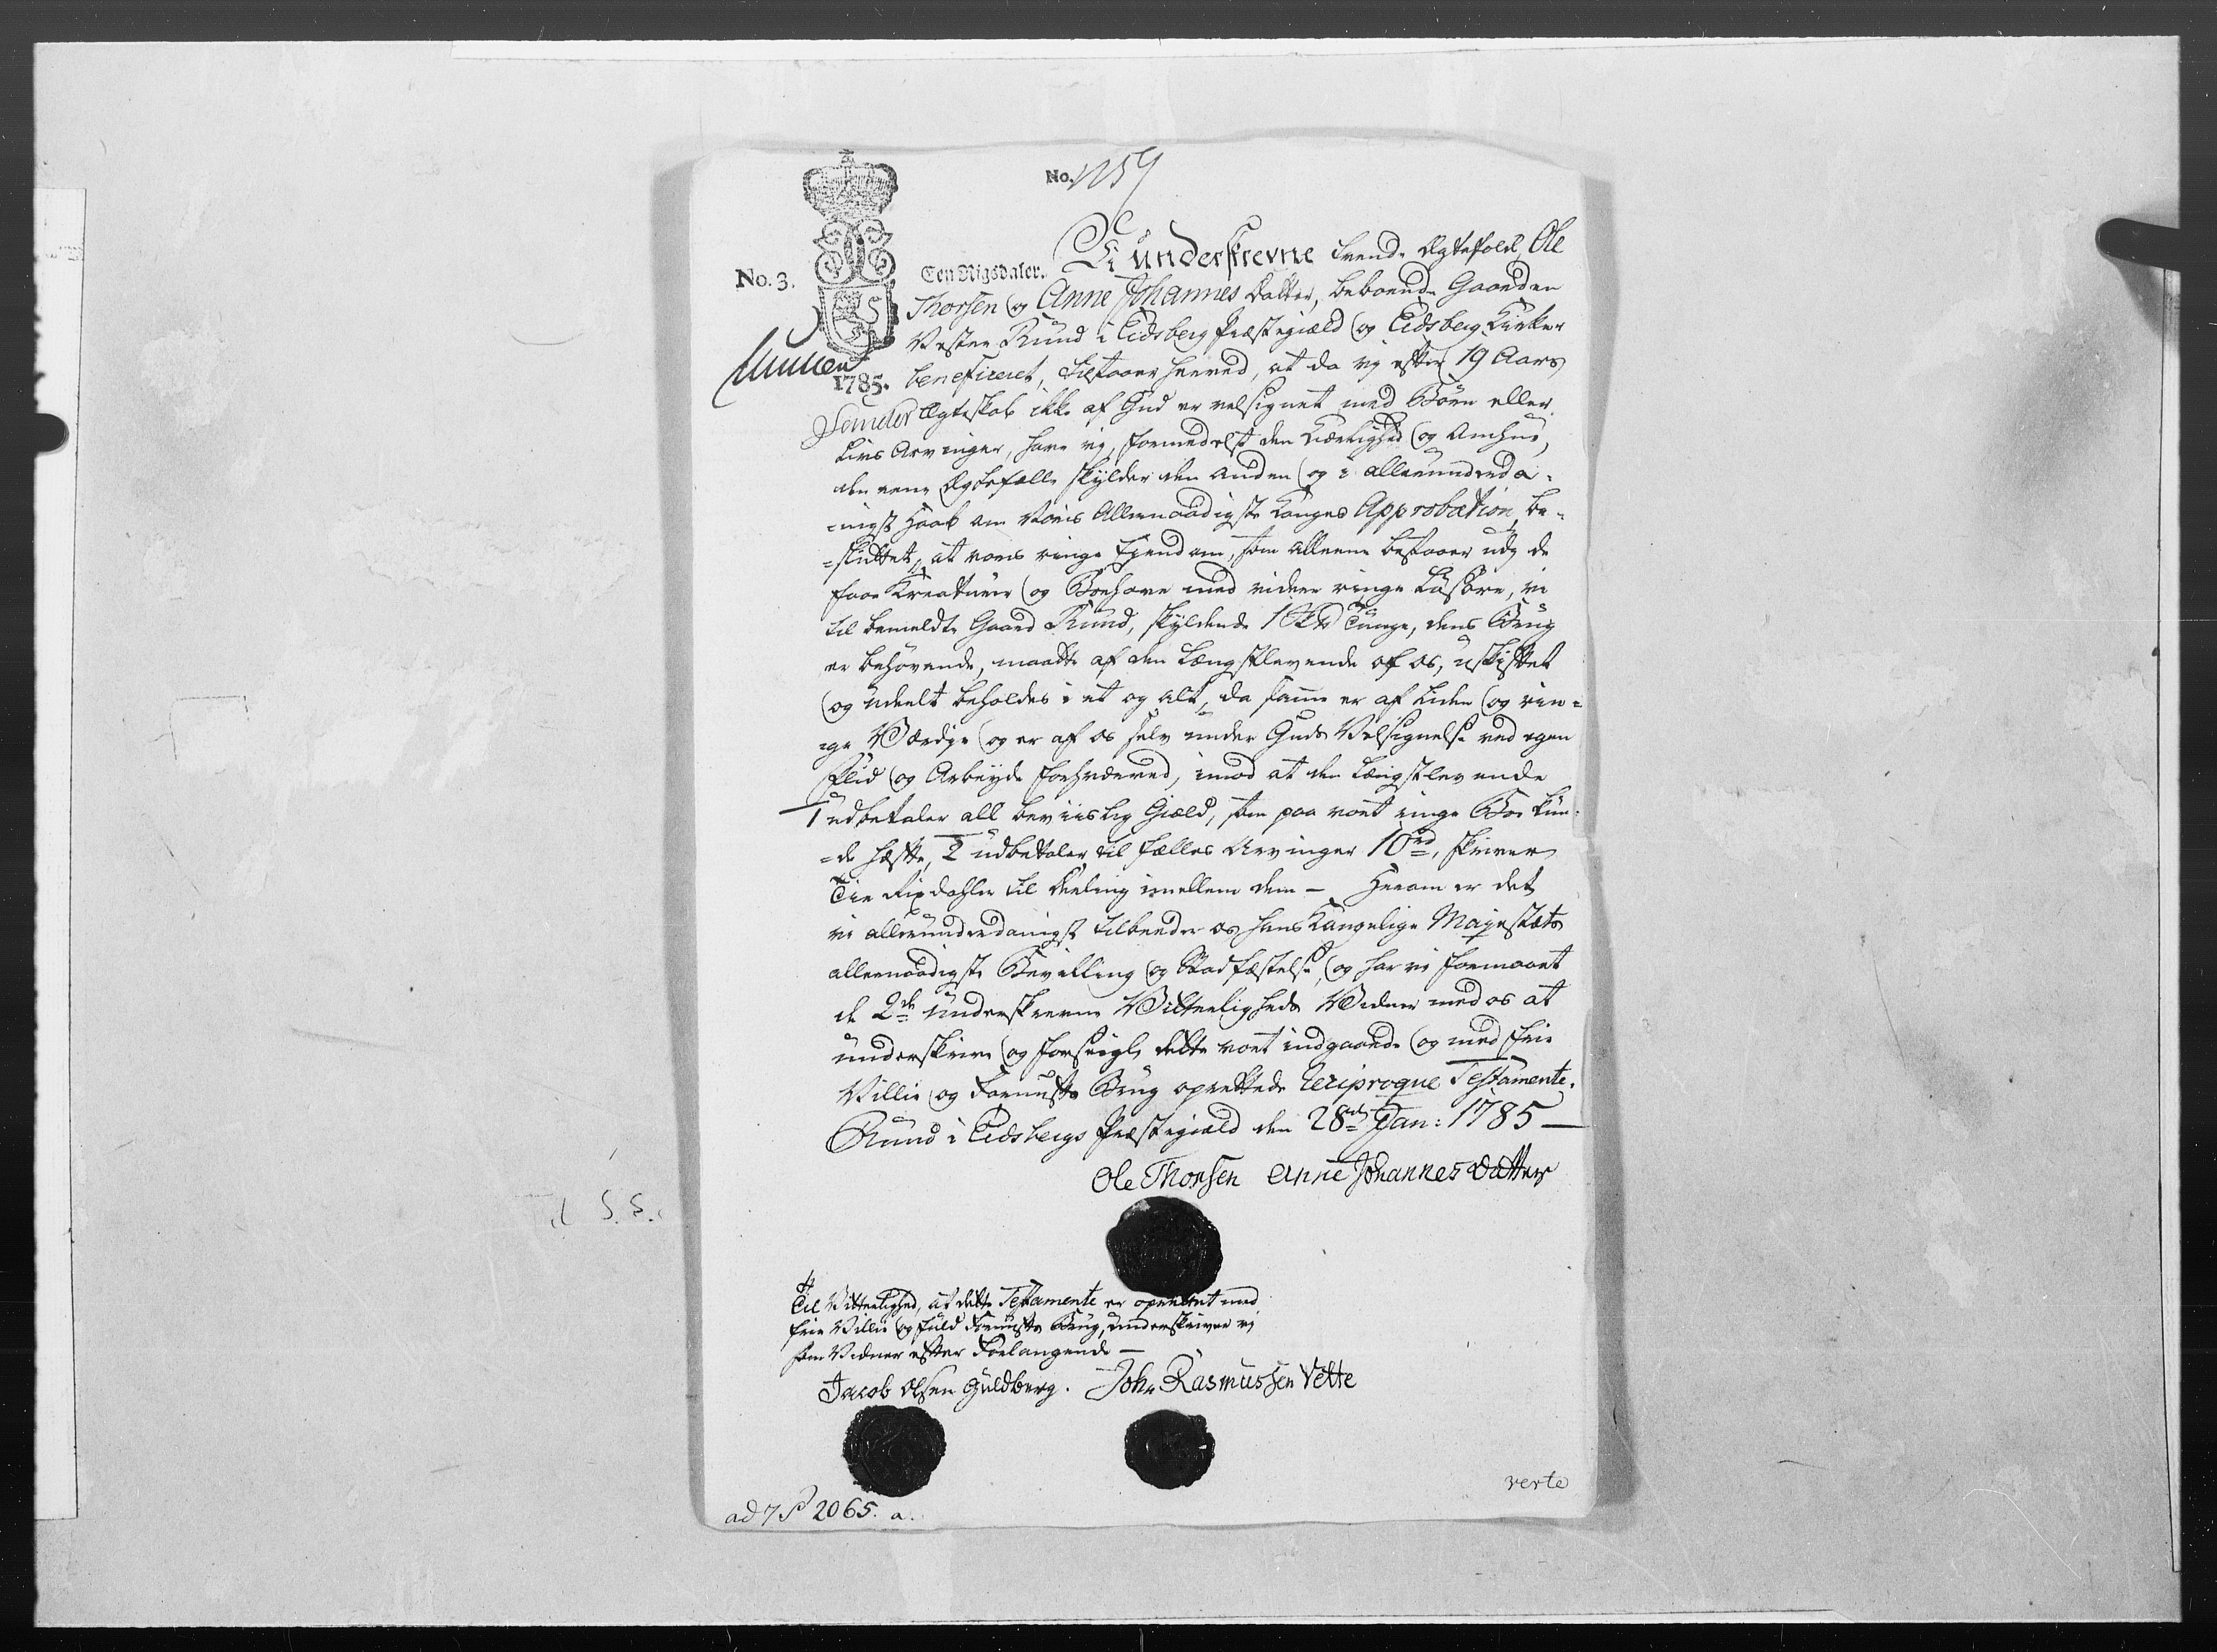 No. 1159
No. 3.
Een Rigsdaler.
1785.
Vi underskrevne tvende Ægtefolk, Ole
Thorsen og Anne Johannes Datter, beboende Gaarden
Vestre Rund i Eidsberg Præstegield og Eidsberg Kirke
beneficeret, tilstaaer herved, at da vj efter 19 Aars
Ægteskab ikke af Gud er velsignet med Börn eller
Livs Arvinger, have vj, formedelst den Kierlighed og Omhue,
den eene Ægtefælle skylder den anden og i allerunderda-
-nigst Haab om Voris Allernaadigste Konges Approbation, be-
-sluttet, at voris ringe Ejendom, som alleene bestaaer udj de
faae Kreature og Boehave med videre ringe Lösöre, vi
til bemeldte Gaard Rund, skyldende 1 Tunge, dens Brug
er behövende, maatte af den Længstlevende af os, uskiftet
og udeelt beholdes i et og alt, da samme er af liden og rin-
-ge Værdie og er af os selv under Guds Velsignelse ved egen
Flid og Arbeyde forhværved, imod at den Længstlevende
1 udbetaler all beviislig Giæld, som paa voret ringe Boe kun-
-de hæfte, 2 udbetaler til fælles Arvinger 10 rd, skriver
Tie Rixdahler til Deeling imellem dem — Herom er det
vi allerunderdanigst udbeder os Hans Kongelige Majestæts
allernaadigste Bevilling og Stadfæstelse, og har vi formaaet
de 2de underskrevne Vitterligheds Vidner med os at
underskrive og forseigle dette voret indgaaende og med frie
Villie og Fornufts Brug oprettede reciproque Testamente.
Rund i Eidsbergs Præstegield den 28de Jan: 1785 —
Ole Thorsen Anne Johannes Datter
Til Vitterlighed, at dette Testamente er oprettet med
frie Villie og fuld Fornufts Brug, underskriver vj
som Vidner efter Forlangende —
Jacob Olsen Guldberg. Joh. Rasmussen Vette
verte
ad 7 S 2065. a.